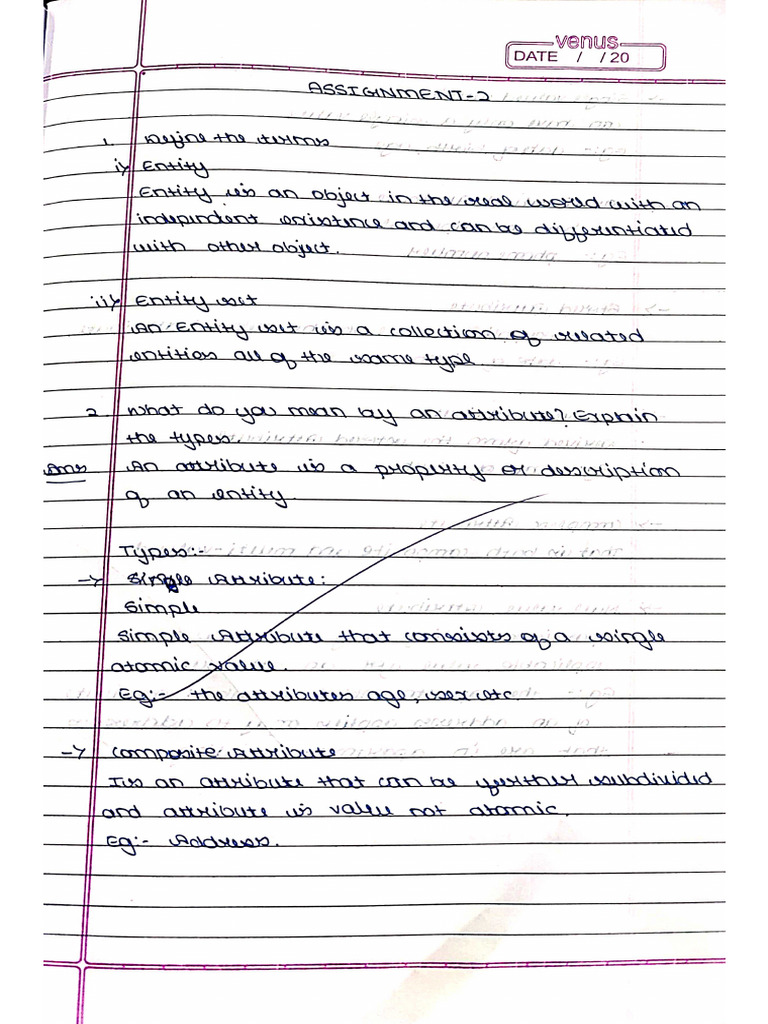 venus
DATE / / 20
ASSIGNMENT-2
1. Define the terms
i) Entity
Entity is an object in the real world with an
independent existence and can be differentiated
with other object.
ii) Entity set
An Entity set is a collection of related
entities all of the same type.
2. What do you mean by an attribute? Explain
the types.
Ans An attribute is a property or description
of an entity.
Types:-
-> Single Attribute:
Simple
Simple Attribute that consists of a single
atomic value.
Eg:- the attributes age, sex etc.
-> Composite Attribute
Its an attribute that can be further subdivided
and attribute is value not atomic.
Eg:- Address.